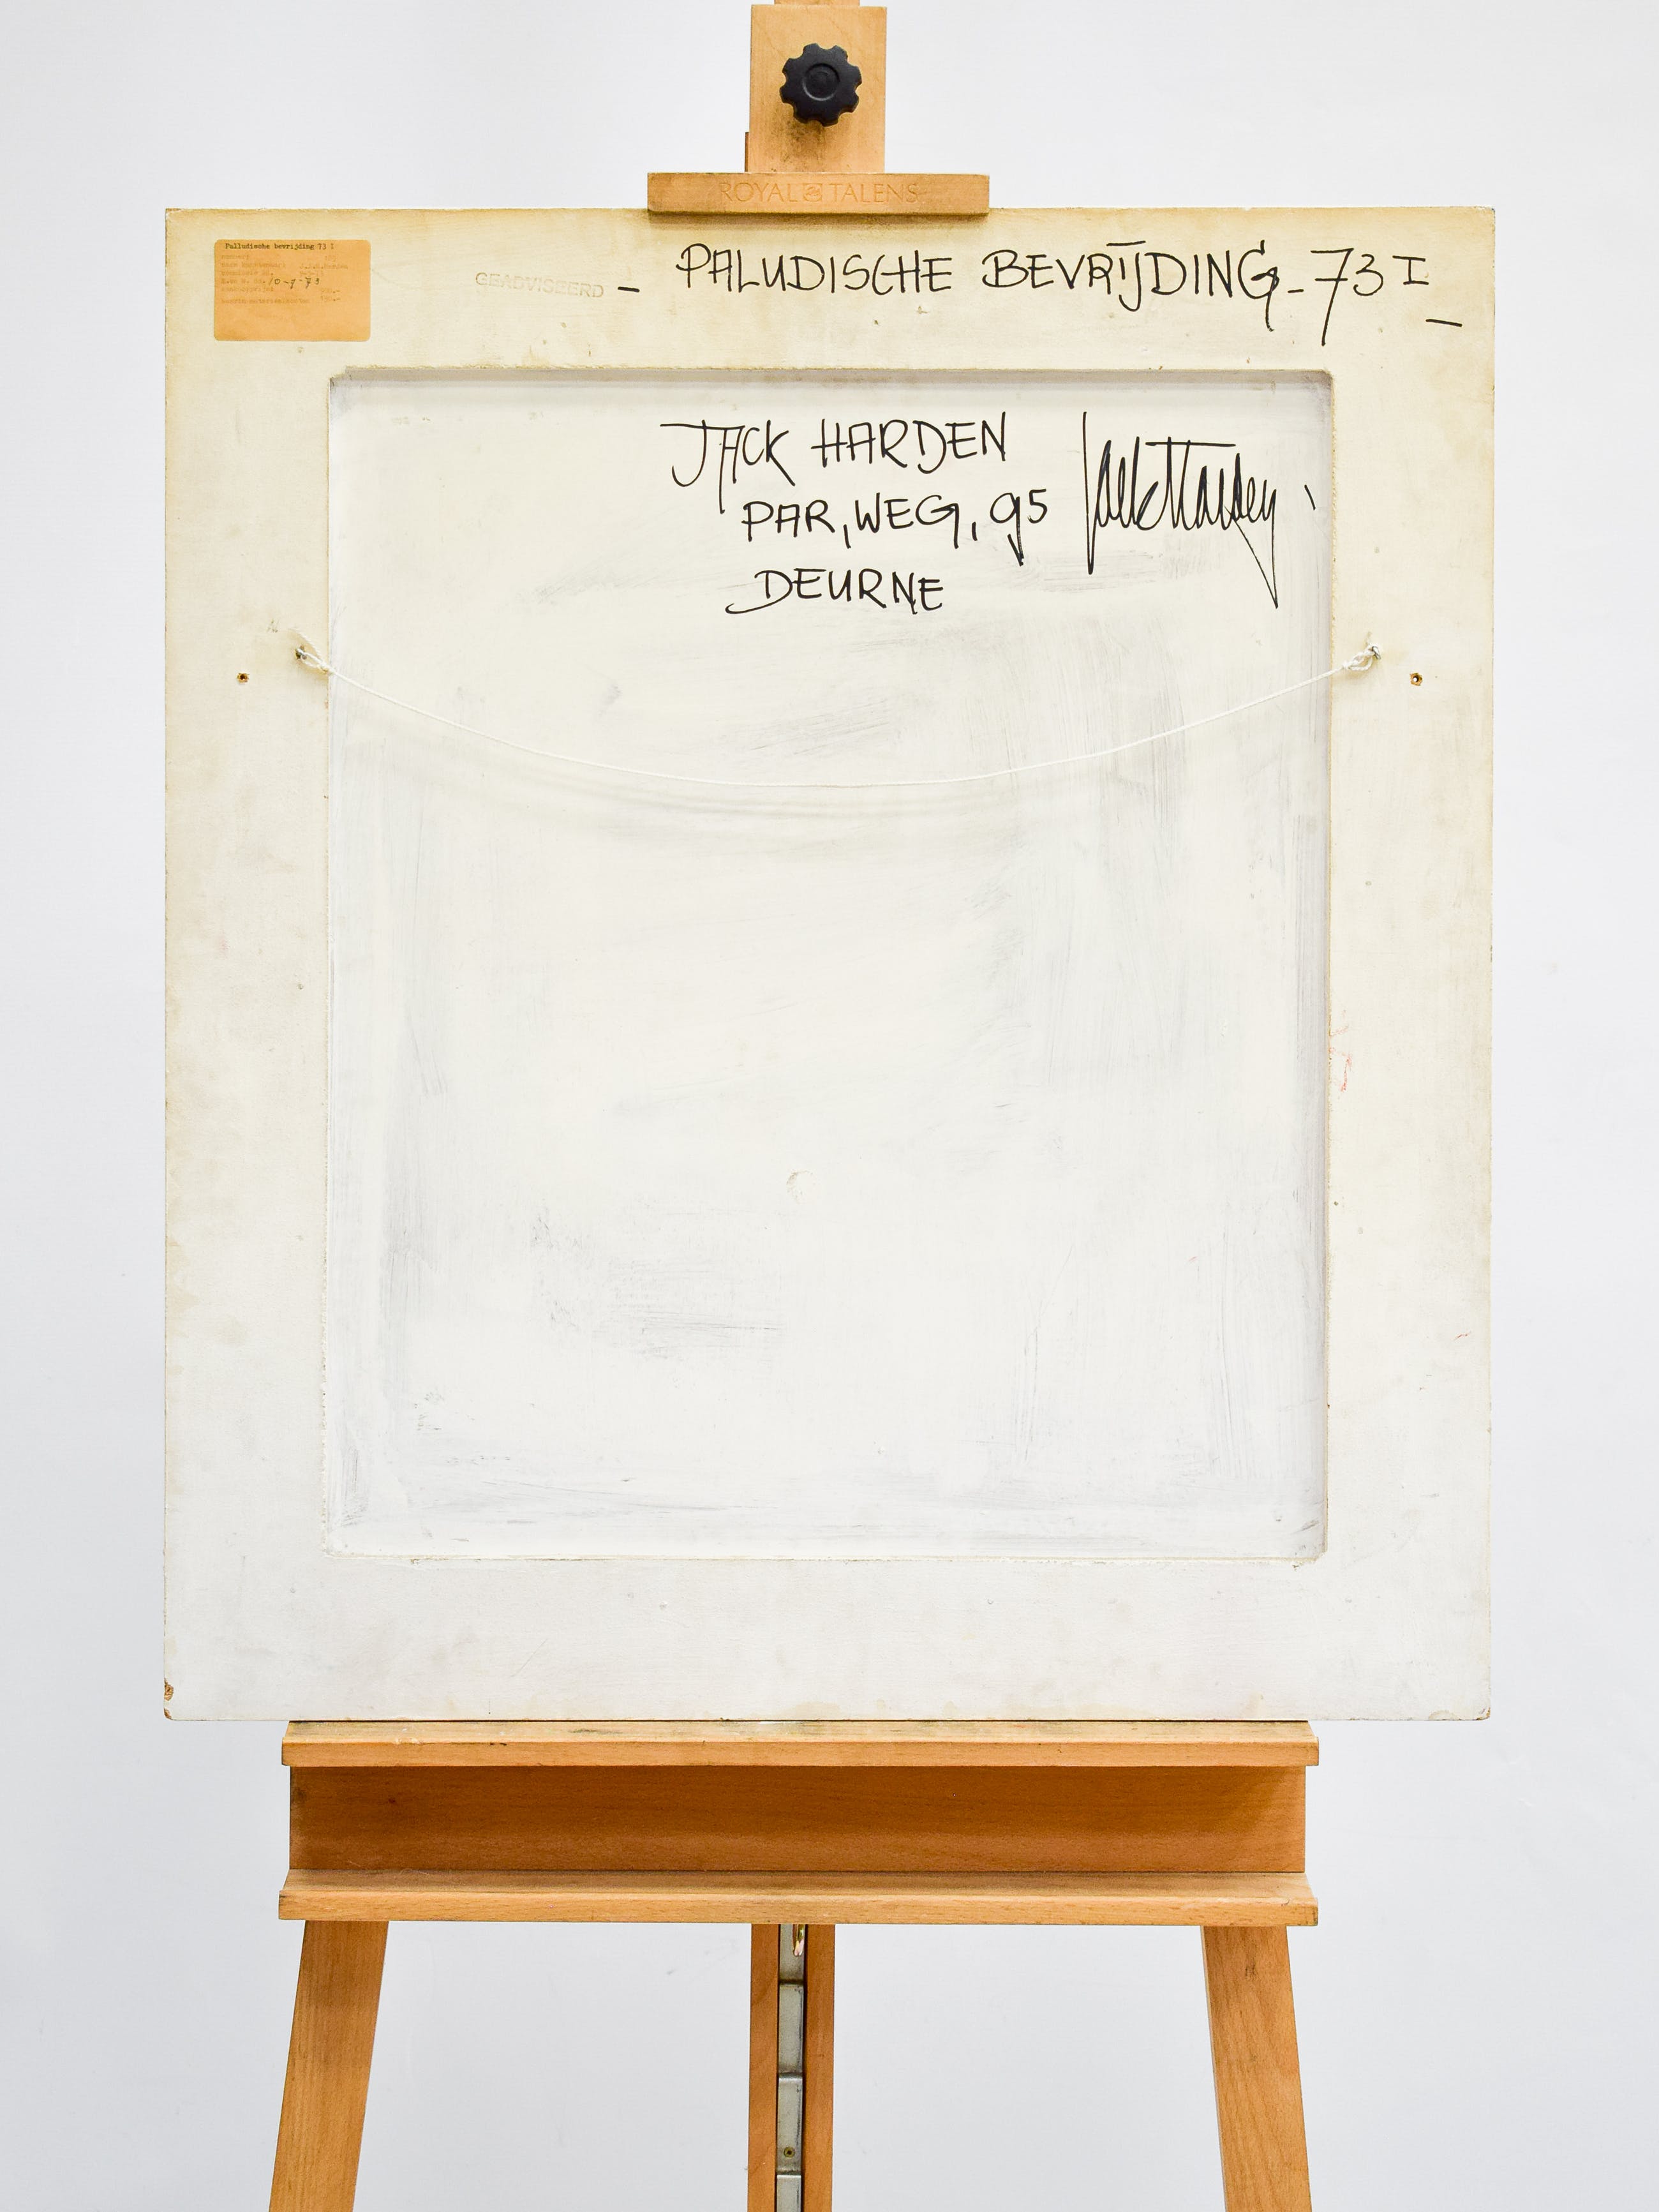 ROYAL TALENS
Palludische bevrijding 73 I
GEADVISEERD
- PALUDISCHE BEVRIJDING - 73 I -
JACK HARDEN
PAR, WEG, 95
DEURNE
Jack Harden